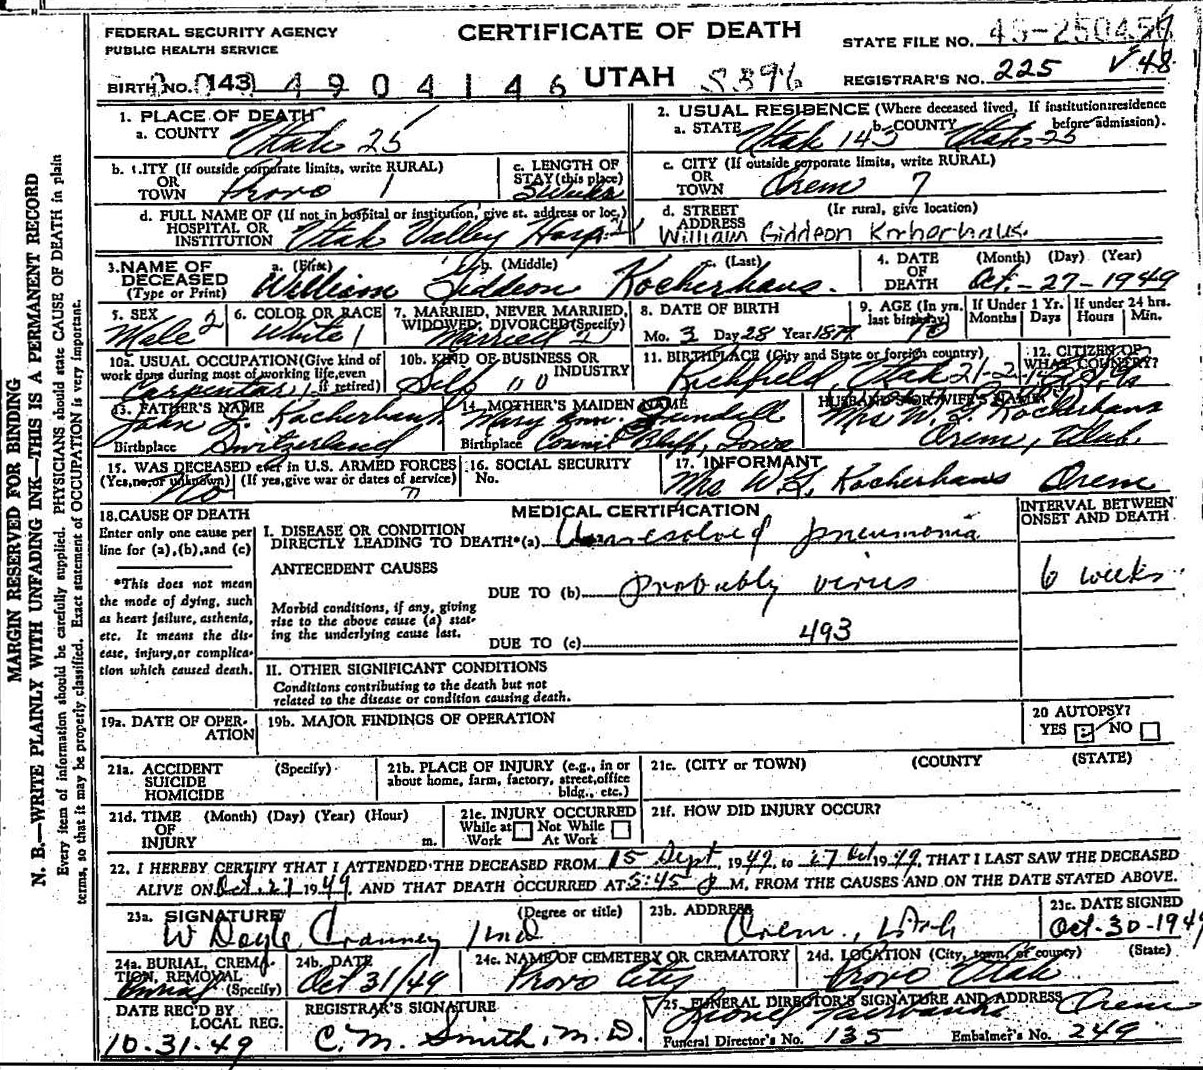 CERTIFICATE OF DEATH
FEDERAL SECURITY AGENCY
PUBLIC HEALTH SERVICE
STATE FILE NO. 45-25045
BIRTH NO. 143 4904146 UTAH S396
REGISTRAR'S NO. 225 V 48
1. PLACE OF DEATH
a. COUNTY Utah 25
2. USUAL RESIDENCE (Where deceased lived, If institution:residence before admission).
a. STATE Utah 143 b. COUNTY Utah 25
b. CITY (If outside corporate limits, write RURAL) OR TOWN Provo 1
c. LENGTH OF STAY (this place) 5 Weeks
c. CITY (If outside corporate limits, write RURAL) OR TOWN Orem 7
d. FULL NAME OF (If not in hospital or institution, give st. address or loc.) HOSPITAL OR INSTITUTION Utah Valley Hosp
d. STREET ADDRESS (If rural, give location)
William Giddeon Kocherhaus.
3. NAME OF DECEASED (Type or Print)
a. (First) b. (Middle) c. (Last)
William Giddeon Kocherhaus.
4. DATE OF DEATH (Month) (Day) (Year)
Oct. - 27 - 1949
5. SEX Male 2
6. COLOR OR RACE White 1
7. MARRIED, NEVER MARRIED, WIDOWED, DIVORCED (Specify) Married 2
8. DATE OF BIRTH
Mo. 3 Day 28 Year 1879
9. AGE (In yrs. last birthday) 70
If Under 1 Yr. Months Days
If under 24 hrs. Hours Min.
10a. USUAL OCCUPATION (Give kind of work done during most of working life, even if retired) Carpenter
10b. KIND OF BUSINESS OR INDUSTRY Self
11. BIRTHPLACE (City and State or foreign country)
Richfield, Utah 21-2
12. CITIZEN OF WHAT COUNTRY?
13. FATHER'S NAME John Kocherhaus
Birthplace Switzerland
14. MOTHER'S MAIDEN NAME Mary Ann
Birthplace Council Bluff, Iowa
HUSBAND'S OR WIFE'S NAME
Mrs W. G. Kocherhaus
Orem, Utah.
15. WAS DECEASED ever in U.S. ARMED FORCES
(Yes, no, or unknown) (If yes, give war or dates of service)
No
16. SOCIAL SECURITY No.
17. INFORMANT
Mrs W. G. Kocherhaus Orem
18. CAUSE OF DEATH
Enter only one cause per line for (a), (b), and (c)
*This does not mean the mode of dying, such as heart failure, asthenia, etc. It means the disease, injury, or complication which caused death.
MEDICAL CERTIFICATION
INTERVAL BETWEEN ONSET AND DEATH
I. DISEASE OR CONDITION DIRECTLY LEADING TO DEATH*(a) Unresolved pneumonia
ANTECEDENT CAUSES
DUE TO (b) probably virus
6 weeks
Morbid conditions, if any, giving rise to the above cause (a) stating the underlying cause last.
DUE TO (c) 493
II. OTHER SIGNIFICANT CONDITIONS
Conditions contributing to the death but not related to the disease or condition causing death.
19a. DATE OF OPERATION
19b. MAJOR FINDINGS OF OPERATION
20 AUTOPSY?
YES NO
21a. ACCIDENT SUICIDE HOMICIDE (Specify)
21b. PLACE OF INJURY (e.g., in or about home, farm, factory, street, office bldg., etc.)
21c. (CITY or TOWN) (COUNTY (STATE)
21d. TIME OF INJURY (Month) (Day) (Year) (Hour) m.
21e. INJURY OCCURRED
While at Work Not While At Work
21f. HOW DID INJURY OCCUR?
22. I HEREBY CERTIFY THAT I ATTENDED THE DECEASED FROM 15 Sept, 1949, to 27 Oct 1949, THAT I LAST SAW THE DECEASED
ALIVE ON Oct. 27 1949, AND THAT DEATH OCCURRED AT 5:45 P M, FROM THE CAUSES AND ON THE DATE STATED ABOVE.
23a. SIGNATURE (Degree or title)
W Doyle Cranney MD
23b. ADDRESS
Orem, Utah
23c. DATE SIGNED
Oct-30-1949
24a. BURIAL, CREMATION, REMOVAL (Specify) Burial
24b. DATE Oct 31/49
24c. NAME OF CEMETERY OR CREMATORY
Provo City
24d. LOCATION (City, town, or county) (State)
Provo Utah
DATE REC'D BY LOCAL REG.
10-31-49
REGISTRAR'S SIGNATURE
C. M. Smith, M. D.
25. FUNERAL DIRECTOR'S SIGNATURE AND ADDRESS Orem
Lionel Fairbanks
Funeral Director's No. 135 Embalmer's No. 249
MARGIN RESERVED FOR BINDING
N. B.—WRITE PLAINLY WITH UNFADING INK—THIS IS A PERMANENT RECORD
Every item of information should be carefully supplied. PHYSICIANS should state CAUSE OF DEATH in plain
terms, so that it may be properly classified. Exact statement of OCCUPATION is very important.